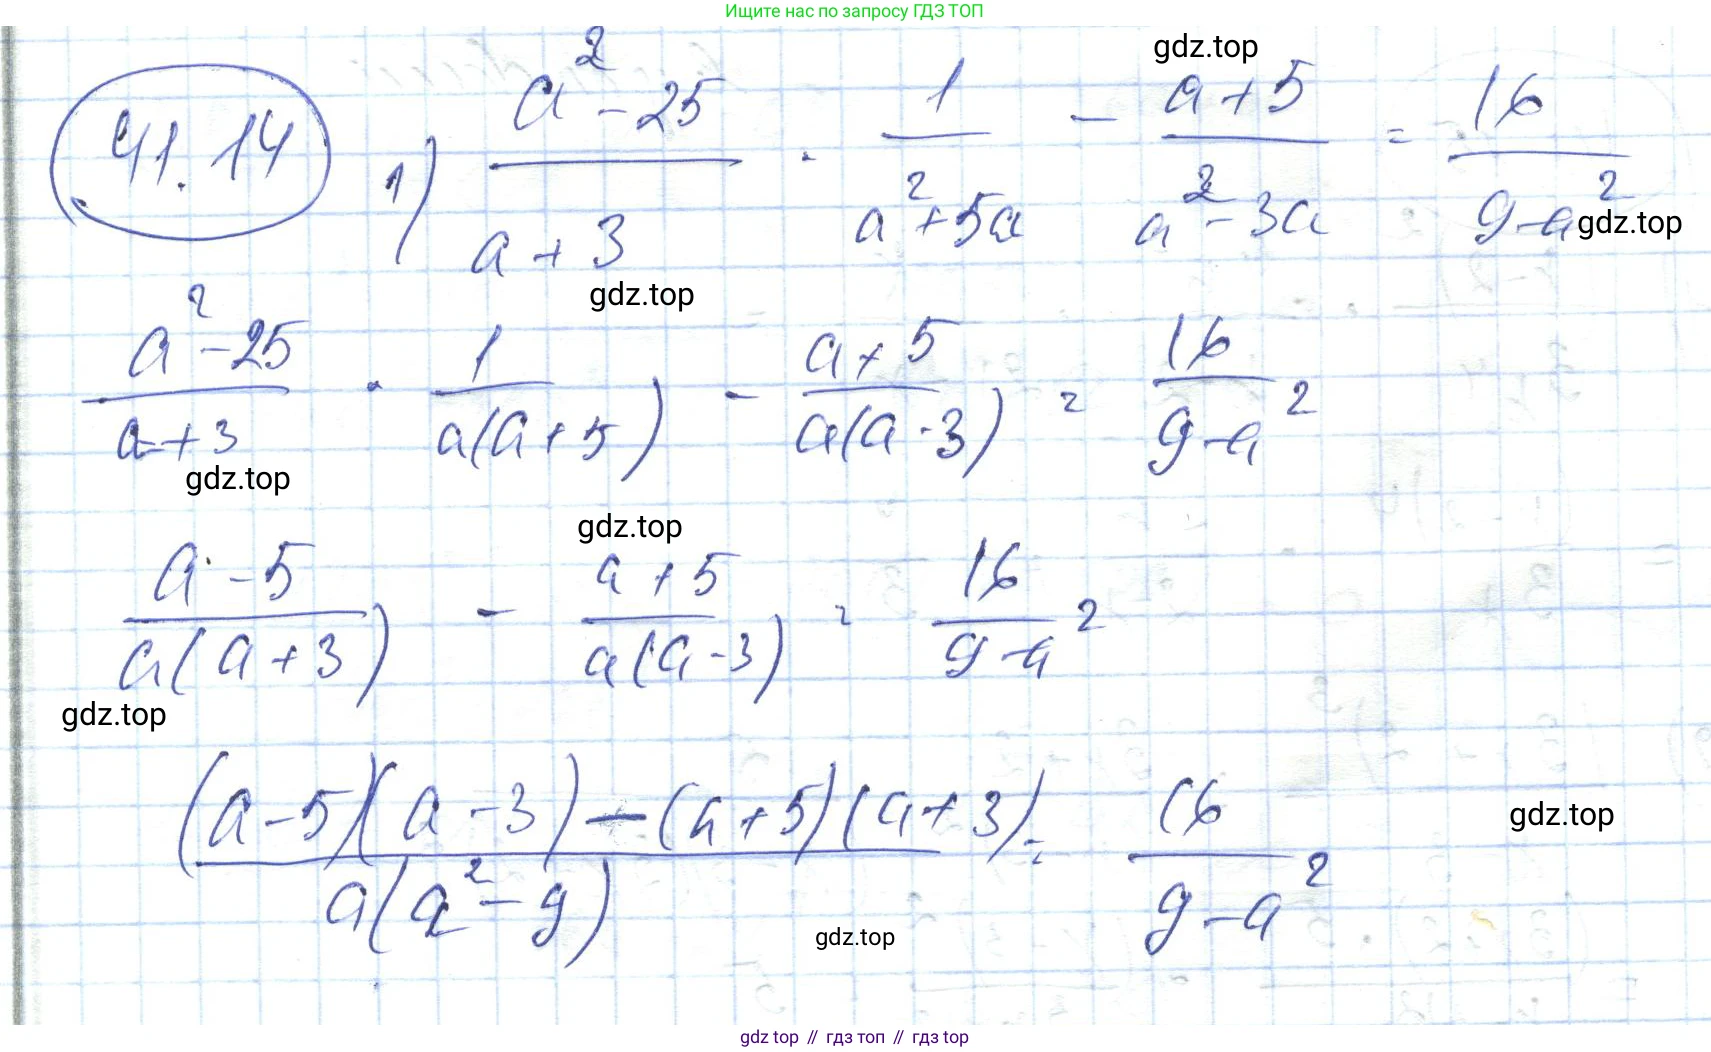 Ищите нас по запросу ГДЗ ТОП
gdz.top
41.14 1) (a² - 25)/(a + 3) · 1/(a² + 5a) - (a + 5)/(a² - 3a) = 16/(9 - a²)
gdz.top
gdz.top
(a² - 25)/(a + 3) · 1/(a(a + 5)) - (a + 5)/(a(a - 3)) = 16/(9 - a²)
gdz.top
gdz.top
(a - 5)/(a(a + 3)) - (a + 5)/(a(a - 3)) = 16/(9 - a²)
gdz.top
((a - 5)(a - 3) - (a + 5)(a + 3))/(a(a² - 9)) = 16/(9 - a²)
gdz.top
gdz.top
gdz top // гдз топ // gdz top